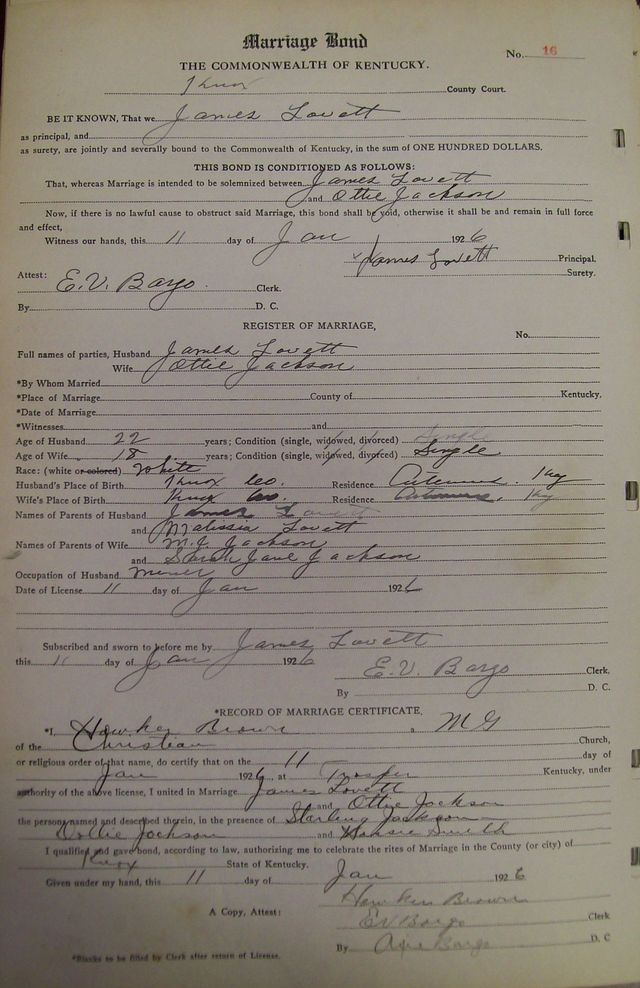 Marriage Bond
No. 16
THE COMMONWEALTH OF KENTUCKY.
Knox County Court.
BE IT KNOWN, That we James Lovett
as principal, and
as surety, are jointly and severally bound to the Commonwealth of Kentucky, in the sum of ONE HUNDRED DOLLARS.
THIS BOND IS CONDITIONED AS FOLLOWS:
That, whereas Marriage is intended to be solemnized between James Lovett
and Ottie Jackson
Now, if there is no lawful cause to obstruct said Marriage, this bond shall be void, otherwise it shall be and remain in full force
and effect,
Witness our hands, this 11 day of Jan 1926
x James Lovett Principal.
Surety.
Attest: E.V. Bargo. Clerk.
By D. C.
REGISTER OF MARRIAGE,
No.
Full names of parties, Husband James Lovett
Wife Ottie Jackson
*By Whom Married
*Place of Marriage County of Kentucky,
*Date of Marriage
*Witnesses and
Age of Husband 22 years; Condition (single, widowed, divorced) Single
Age of Wife 18 years; Condition (single, widowed, divorced) Single
Race: (white or colored) White
Husband's Place of Birth Knox Co. Residence Artemus. Ky
Wife's Place of Birth Knox Co. Residence Artemus, Ky
Names of Parents of Husband James Lovett
and Malissia Lovett
Names of Parents of Wife M.J. Jackson
and Sarah Jane Jackson
Occupation of Husband miner
Date of License 11 day of Jan 1926
Subscribed and sworn to before me by James Lovett
this 11 day of Jan 1926
E.V. Bargo Clerk.
By D. C.
*RECORD OF MARRIAGE CERTIFICATE,
*I, Brown, M G
of the Christian Church,
or religious order of that name, do certify that on the 11 day of
Jan 1926, at Trosper Kentucky, under
authority of the above license, I united in Marriage James Lovett
and Ottie Jackson
the persons named and described therein, in the presence of Sterling Jackson
Dollie Jackson and Smith
I qualified and gave bond, according to law, authorizing me to celebrate the rites of Marriage in the County (or city) of
Knox State of Kentucky.
Given under my hand, this 11 day of Jan 1926
Brown
A Copy, Attest: E V Bargo Clerk
By Bargo D. C
*Blanks to be filled by Clerk after return of License.